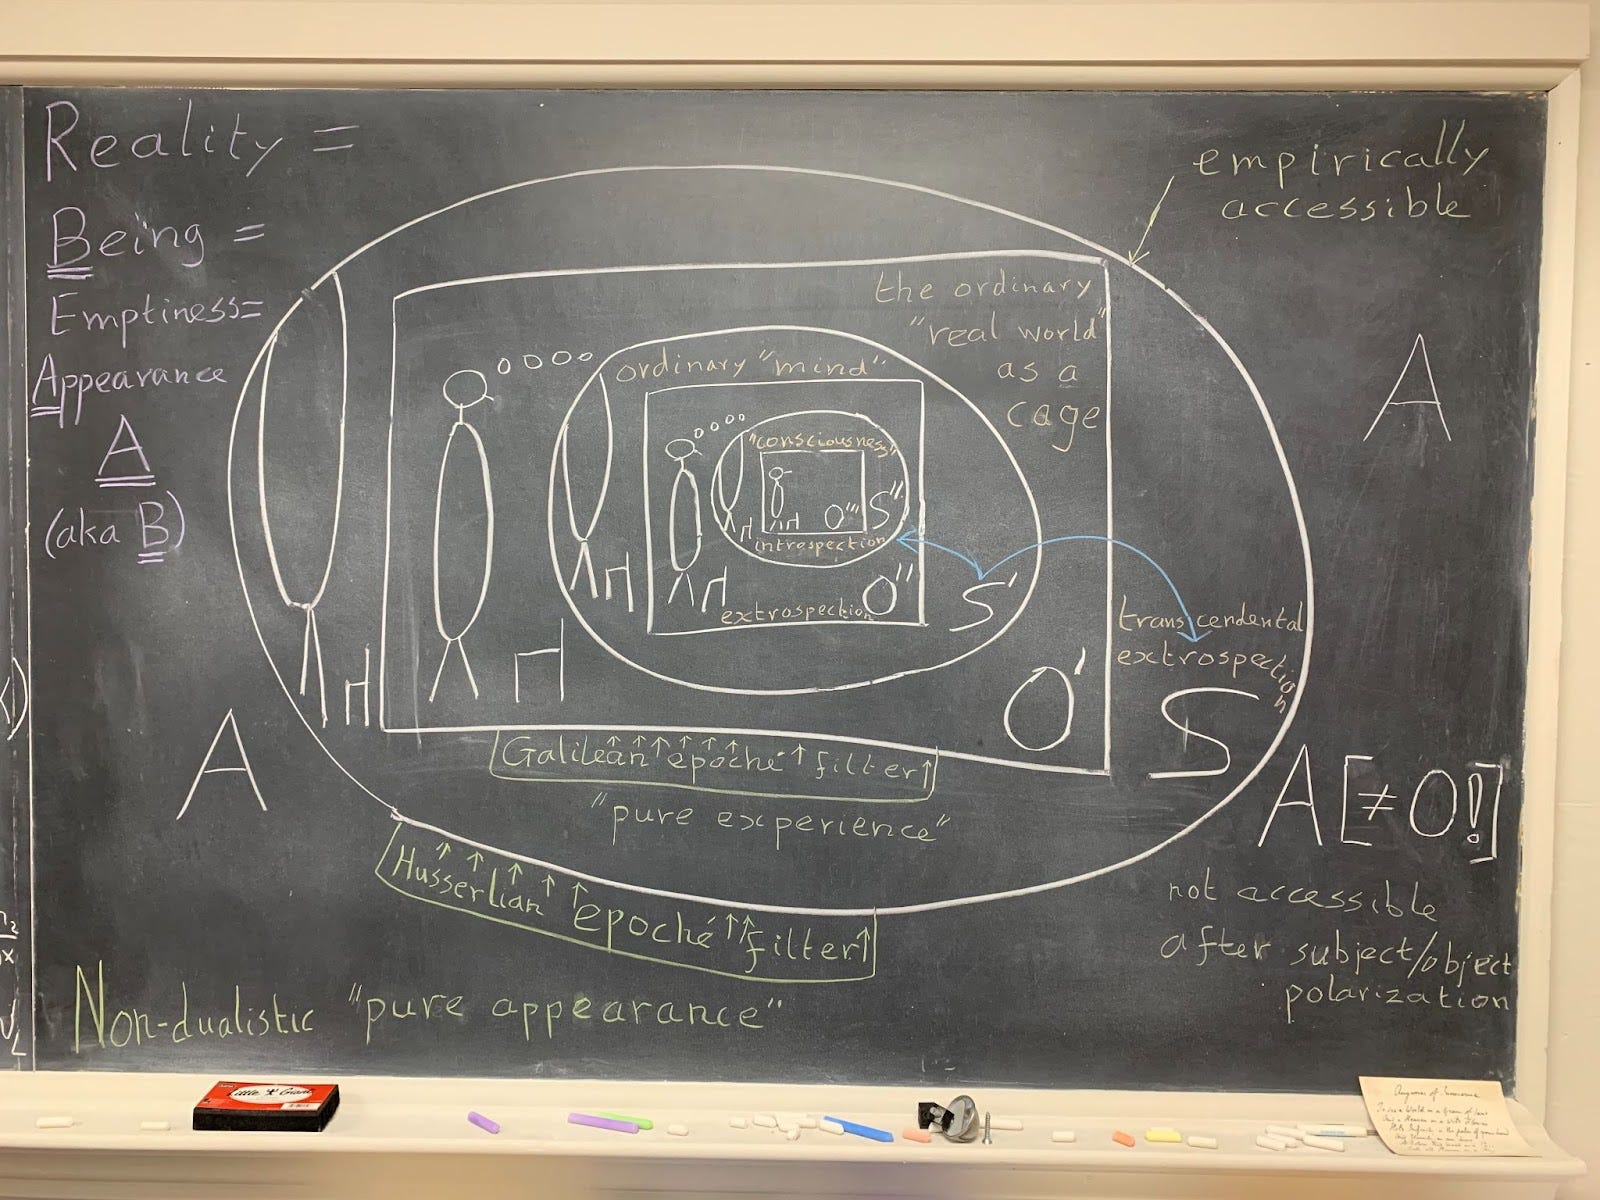 Reality =
Being =
Emptiness=
Appearance
A
(aka B)
empirically
accessible
the ordinary
"real world"
as a
cage
ordinary "mind"
"consciousness"
O'''
S''
intraspection
O''
extrospection
S'
transcendental
extrospection
O'
S
A
A
A [≠O!]
not accessible
after subject/object
polarization
Galilean epoché filter
"pure experience"
Husserlian epoché filter
Non-dualistic "pure appearance"
Little Giant